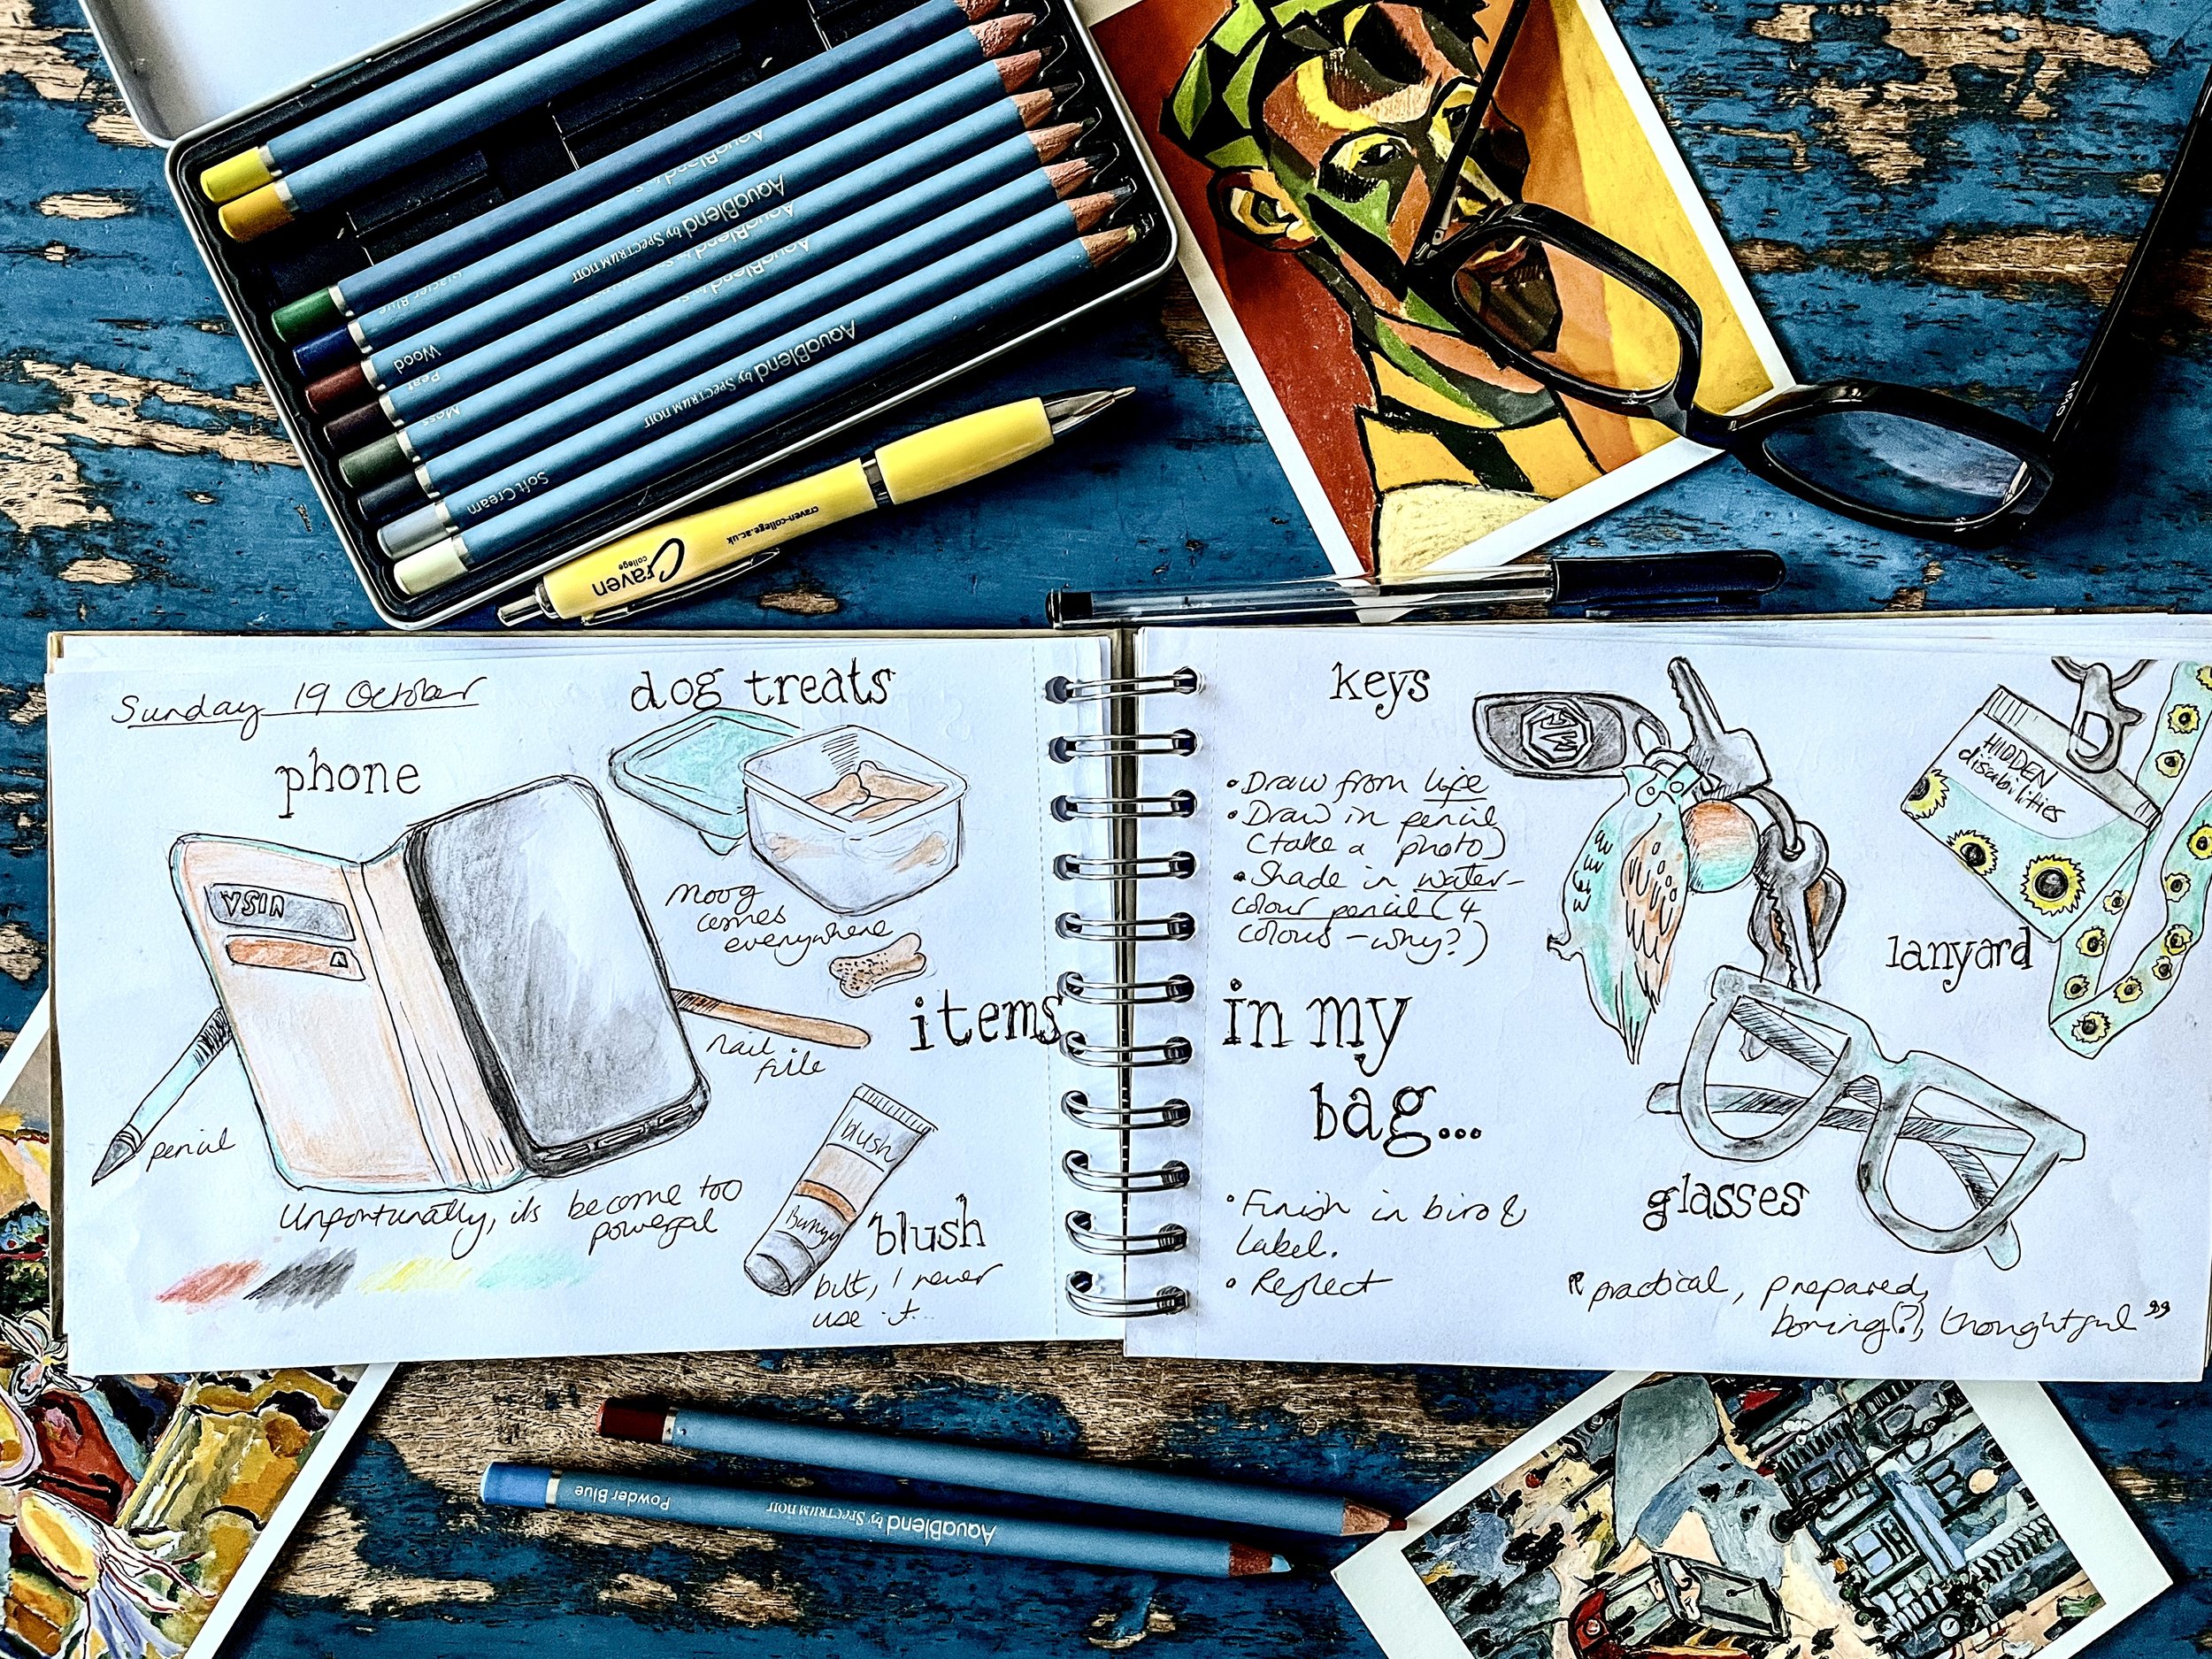 AquaBlend by SPECTRUM NOIR
AquaBlend by SPECTRUM NOIR
Wood
Peat
Moss
Soft Cream
craven-college.ac.uk
Craven
college
Sunday 19 October
phone
VISA
pencil
Unfortunatly, its become too
powerful
dog treats
Moog
comes
everywhere
nail
file
blush
Bunny
blush
but, I never
use it...
items
in my
bag...
keys
MG
• Draw from life
• Draw in pencil
(take a photo)
• Shade in water-
colour pencil (4
colours - why?)
• Finish in biro &
label.
• Reflect
HIDDEN
disabilities
lanyard
glasses
"practical, prepared,
boring(?), thoughtful"
Powder Blue
AquaBlend by SPECTRUM NOIR